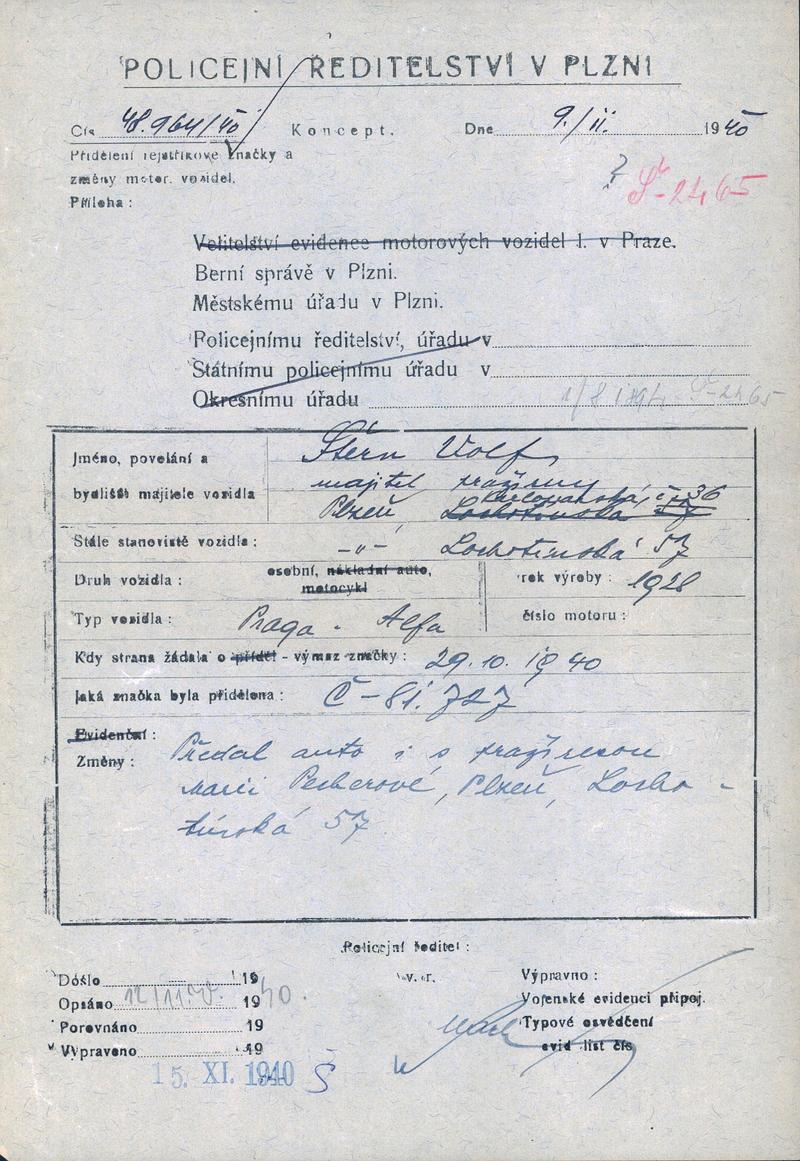 POLICEJNÍ ŘEDITELSTVÍ V PLZNI
Čís. 48.964/40 Koncept. Dne 9./11. 1940
Přidělení rejstříkové značky a
změny motor. vozidel.
Příloha:
? Š-2465
Velitelství evidence motorových vozidel I. v Praze.
Berní správě v Plzni.
Městskému úřadu v Plzni.
Policejnímu ředitelství, úřadu v
Státnímu policejnímu úřadu v
Okresnímu úřadu
Jméno, povolání a Štern Volf
majitel pražírny
bydliště majitele vozidla Karlovarská, č. 36
Plzeň, Lochotínská 57
Stálé stanoviště vozidla: -"- Lochotínská 57
Druh vozidla: osobní, nákladní auto, rok výroby: 1928
motocykl
Typ vozidla: Praga - Alfa číslo motoru:
Kdy strana žádala o příděl - výmaz značky: 29. 10. 1940
Jaká značka byla přidělena: Č-81.727
Evidenční:
Změny: Předal auto i s pražírnou
Marii Pecherové, Plzeň, Locho-
tínská 57
Policejní ředitel:
Došlo 19 v. r. Výpravno:
Opsáno 12/11. 1940. Vojenské evidenci připoj.
Porovnáno 19 Typové osvědčení
Vypraveno 19 evid list čís
15. XI. 1940 Š